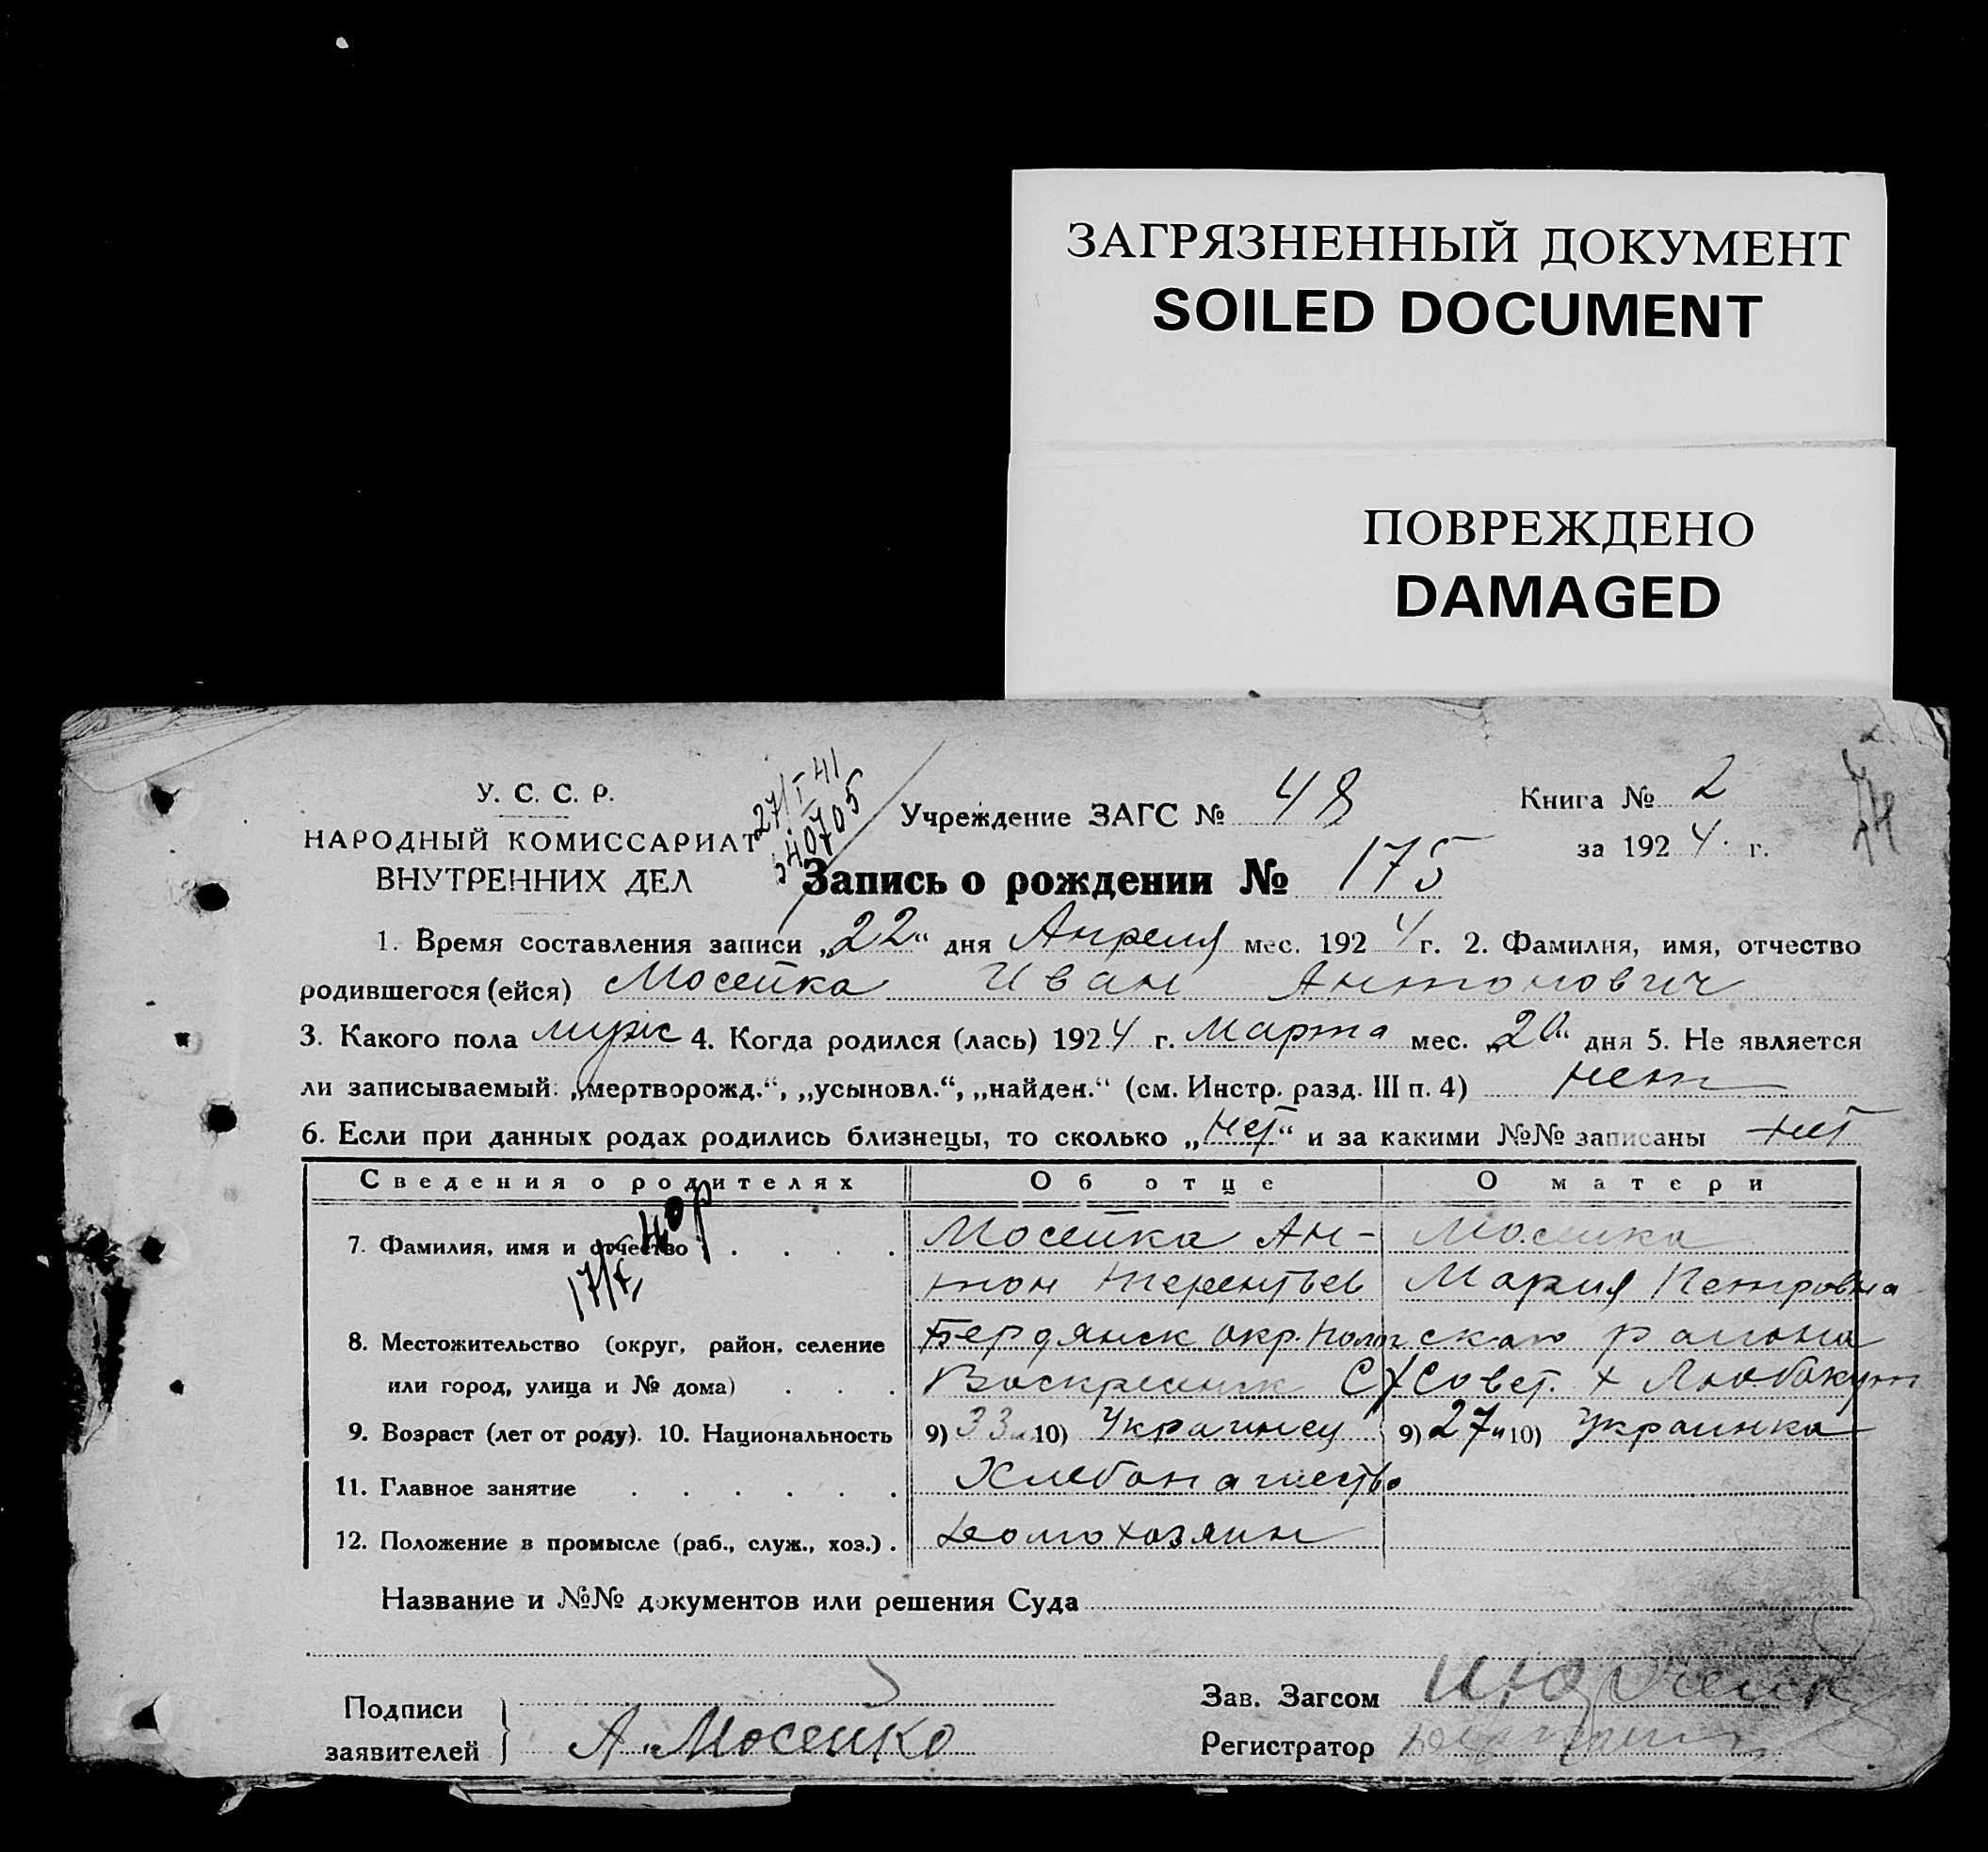 ЗАГРЯЗНЕННЫЙ ДОКУМЕНТ
SOILED DOCUMENT
ПОВРЕЖДЕНО
DAMAGED
У. С. С. Р.
НАРОДНЫЙ КОМИССАРИАТ
ВНУТРЕННИХ ДЕЛ
27/I 41
Учреждение ЗАГС № 48
Книга № 2
за 1924 г.
Запись о рождении № 175
1. Время составления записи „22“ дня Апреля мес. 1924 г. 2. Фамилия, имя, отчество
родившегося (ейся) Мосейка Иван Антонович
3. Какого пола муж 4. Когда родился (лась) 1924 г. Марта мес. „20“ дня 5. Не является
ли записываемый: „мертворожд.“, „усыновл.“, „найден.“ (см. Инстр. разд. III п. 4) нет
6. Если при данных родах родились близнецы, то сколько „нет“ и за какими №№ записаны нет
Сведения о родителях Об отце О матери
7. Фамилия, имя и отчество . . . . Мосейка Ан- Мосейка
тон Терентьев Мария Петровна
8. Местожительство (округ, район, селение Бердянск окр. Пологскаго района
или город, улица и № дома) . . . Воскресенск С/Совет. х
9. Возраст (лет от роду). 10. Национальность 9) 33 10) Украинец 9) 27 10) Украинка
11. Главное занятие . . . . . . Хлебопашество
12. Положение в промысле (раб., служ., хоз.) . домохозяин
Название и №№ документов или решения Суда
Подписи
заявителей
А. Мосейко
Зав. Загсом
Регистратор